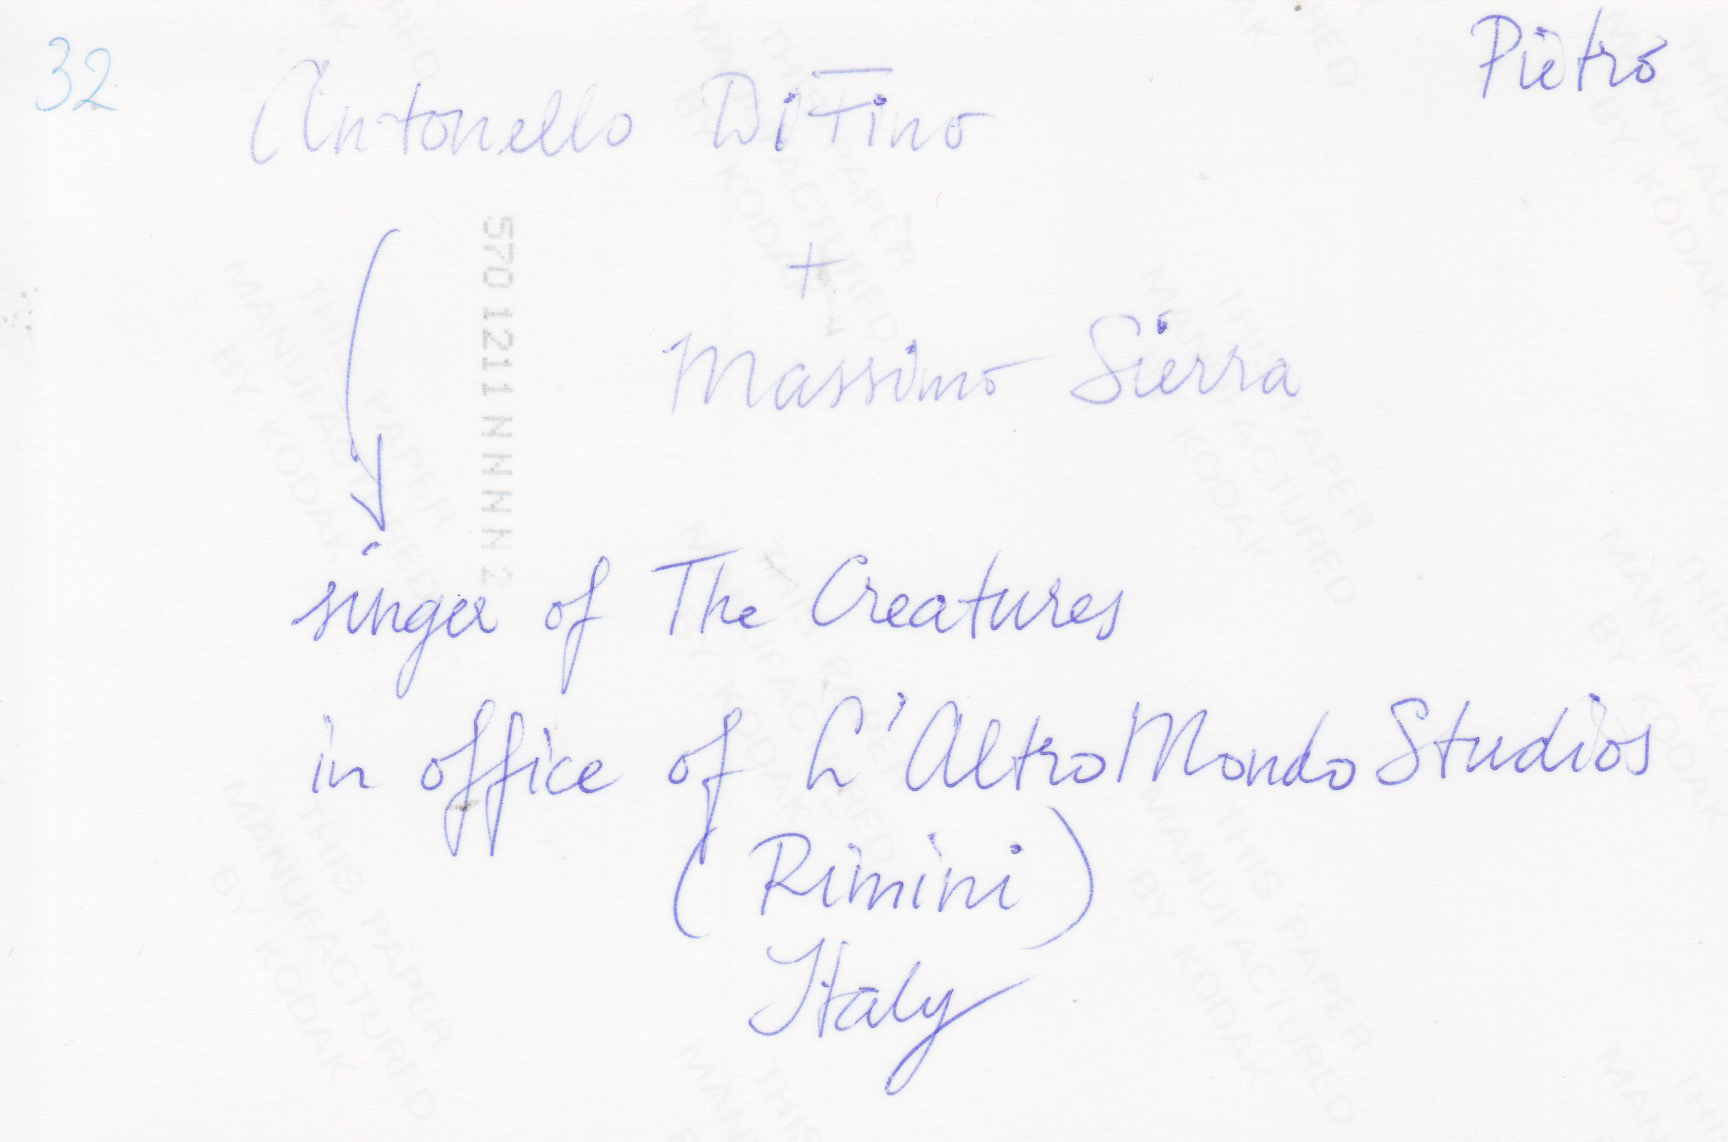 32
Pietro
Antonello Di Fino
+
Massimo Sierra
singer of The Creatures
in office of L'AltroMondo Studios
(Rimini)
Italy
570 1211 N N N N 2
THIS PAPER
MANUFACTURED
BY KODAK